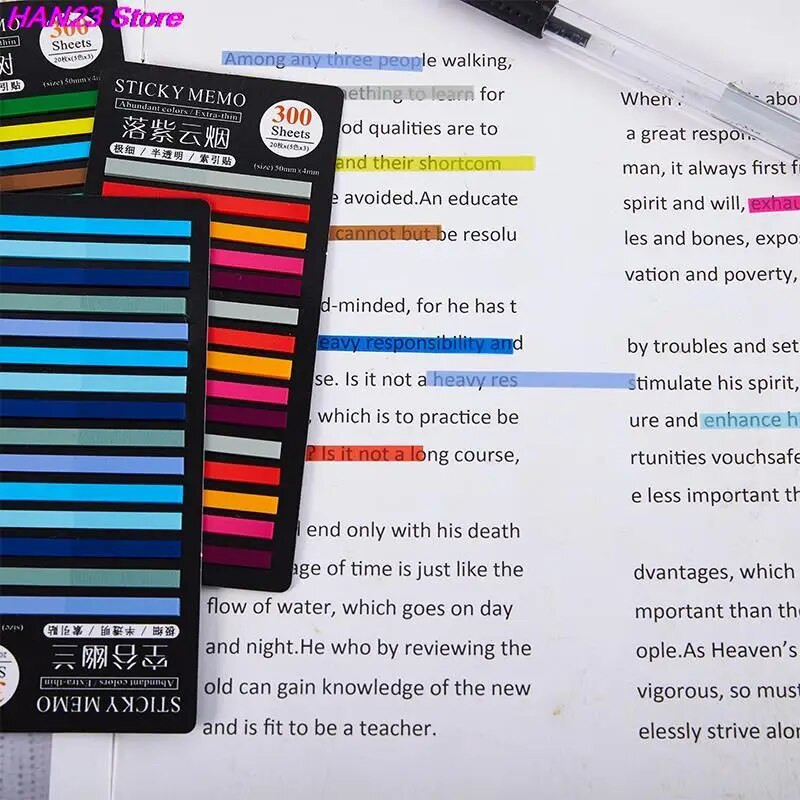 HAN23 Store
300
Sheets
20枚x(5色x3)
(size) 50mmx4mm
STICKY MEMO
Abundant colors / Extra-thin
300
Sheets
20枚x(5色x3)
落紫云烟
极细 / 半透明 / 索引贴
(size) 50mmx4mm
极细 / 半透明 / 索引贴
空谷幽兰
Abundant colors / Extra-thin
STICKY MEMO
Among any three people walking,
something to learn for
od qualities are to
and their shortcom
e avoided.An educate
cannot but be resolu
d-minded, for he has t
heavy responsibility and
se. Is it not a heavy res
, which is to practice be
? Is it not a long course,
end only with his death
age of time is just like the
flow of water, which goes on day
and night.He who by reviewing the
old can gain knowledge of the new
and is fit to be a teacher.
When
abou
a great respon
man, it always first f
spirit and will, exhau
les and bones, expo
vation and poverty,
by troubles and set
stimulate his spirit,
ure and enhance h
rtunities vouchsafe
e less important th
dvantages, which
mportant than the
ople.As Heaven's
vigorous, so must
elessly strive alon